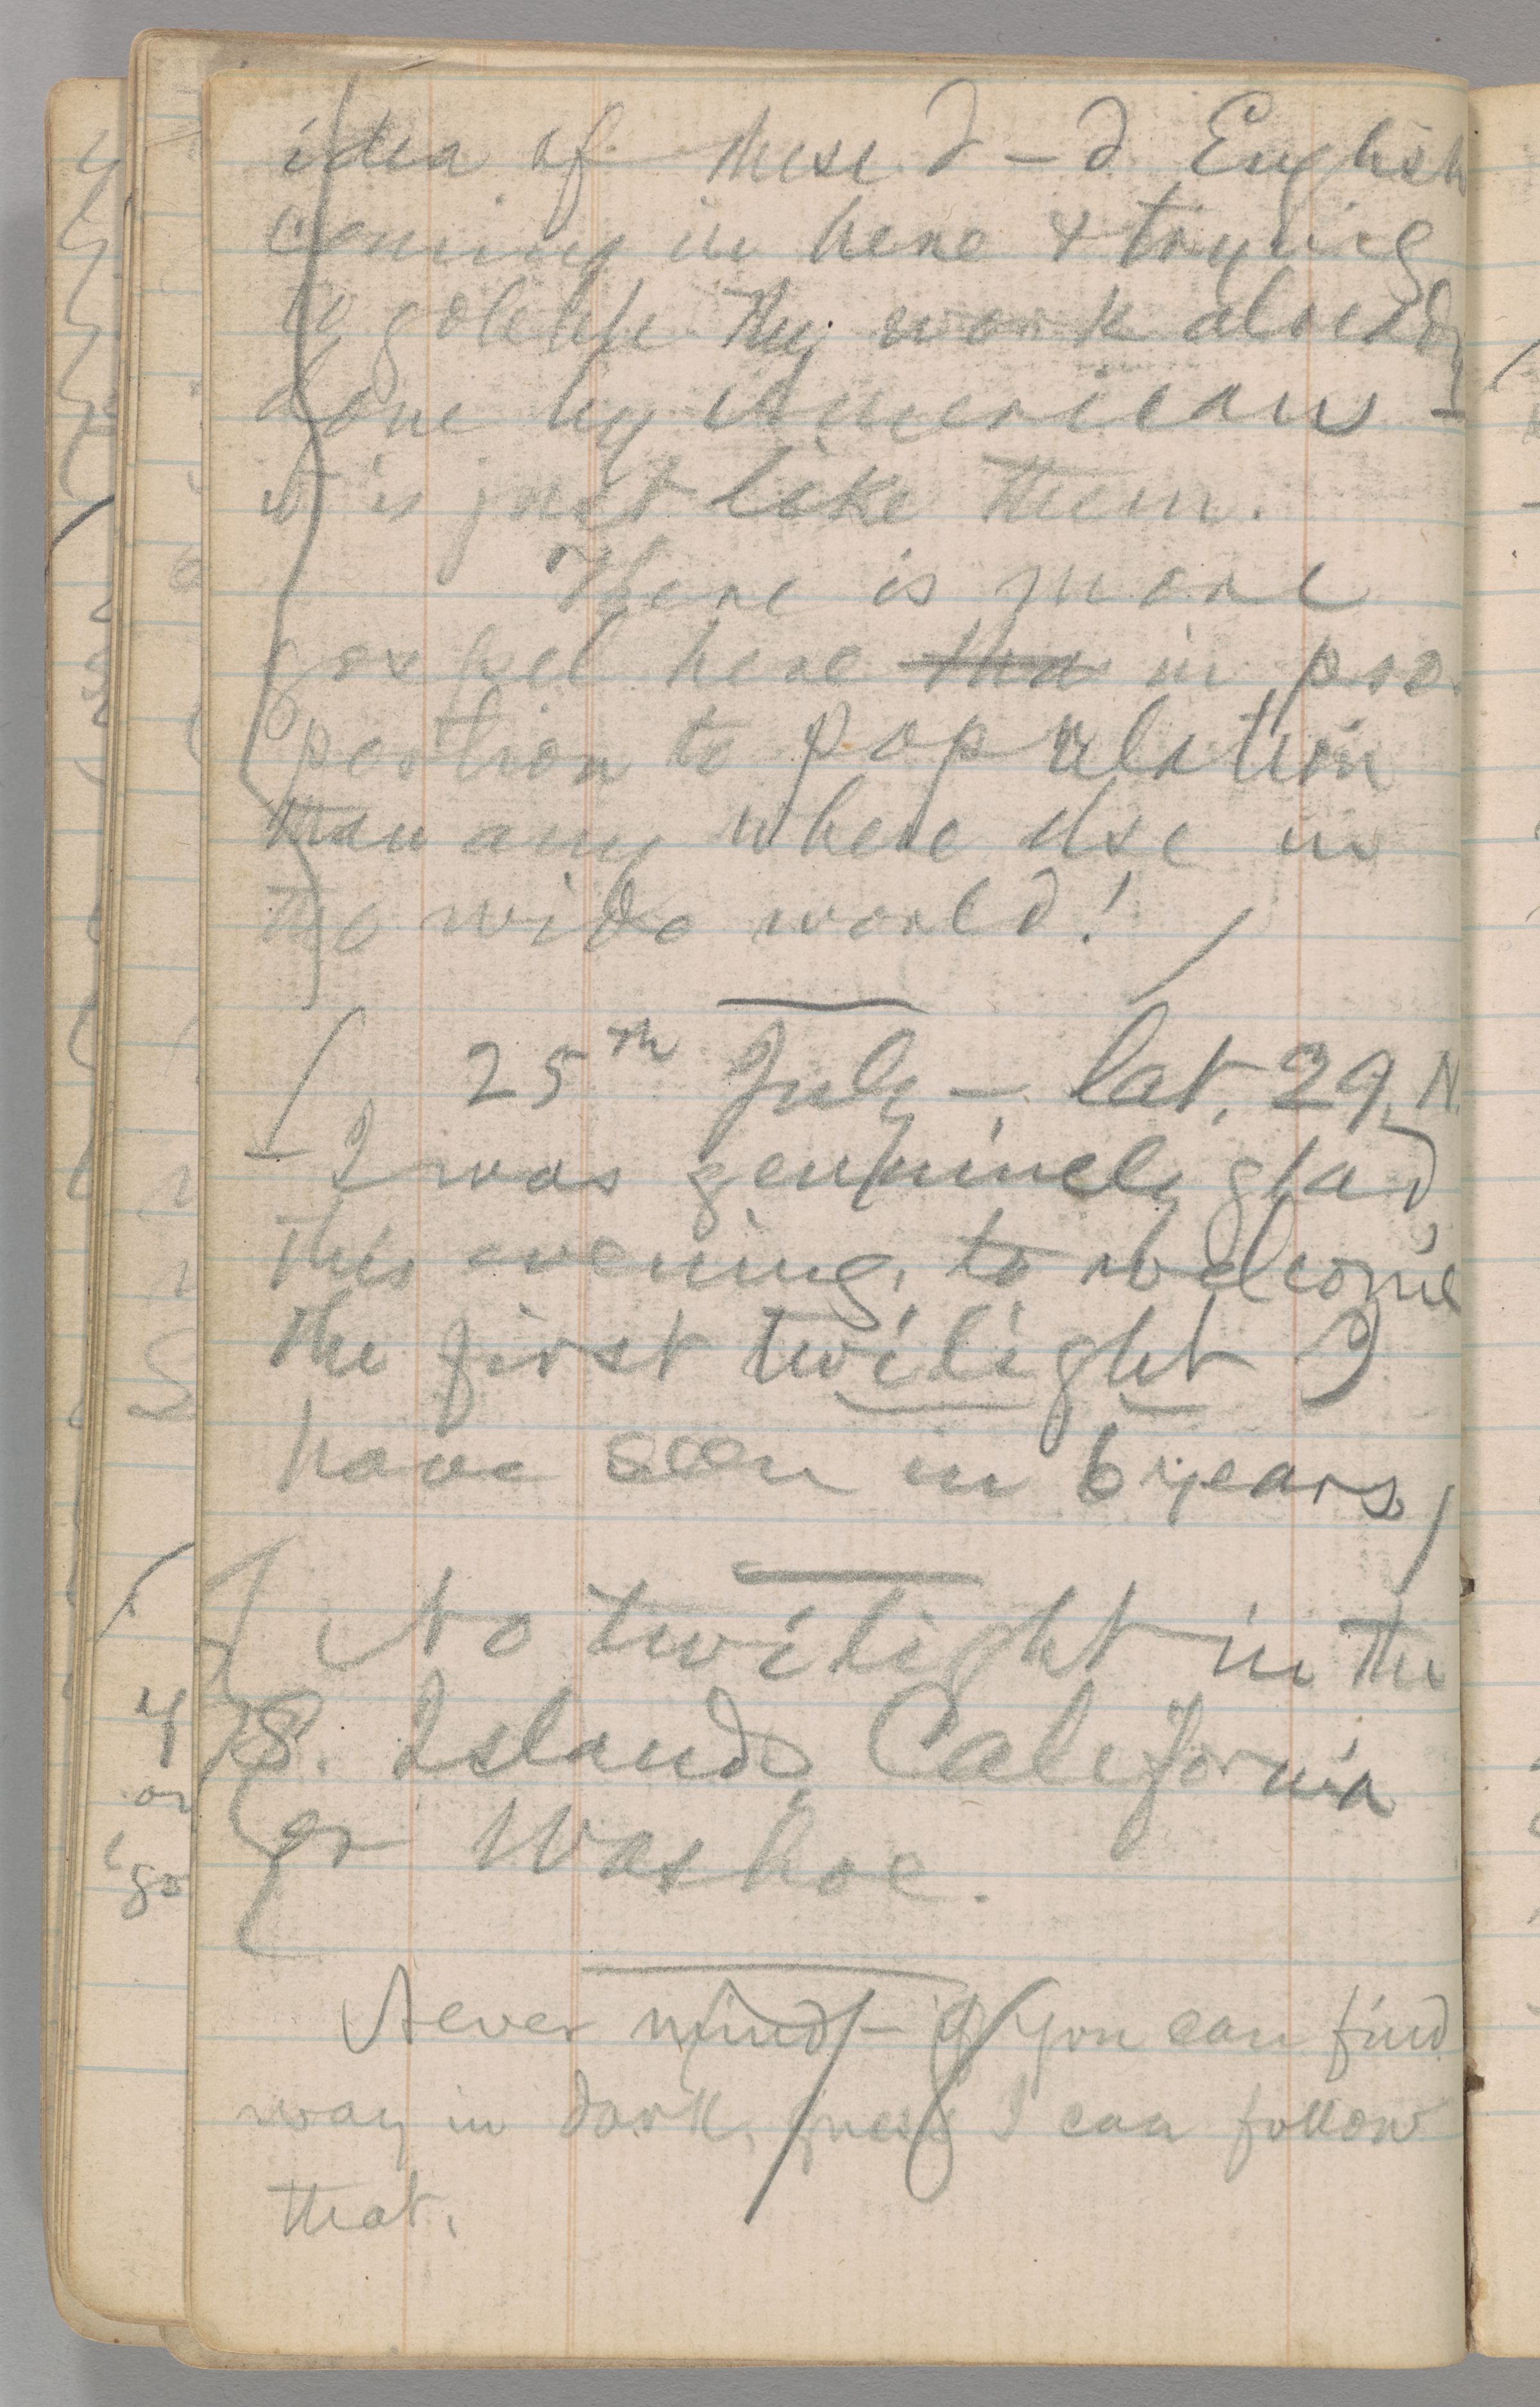 idea of these d—d English
coming in here & trying
to gobble the work already
done by Americans —
it is just like them.
There is more
gospel here tha in pro-
portion to population
than any where else in
the wide world!
25th July — lat. 29, N.
— I was genuinely glad,
this evening, to welcome
the first twilight I
have seen in 6 years
No twilight in the
S. Islands, California
or Washoe.
Never mind — if you can find
way in dark, guess I can follow
that.